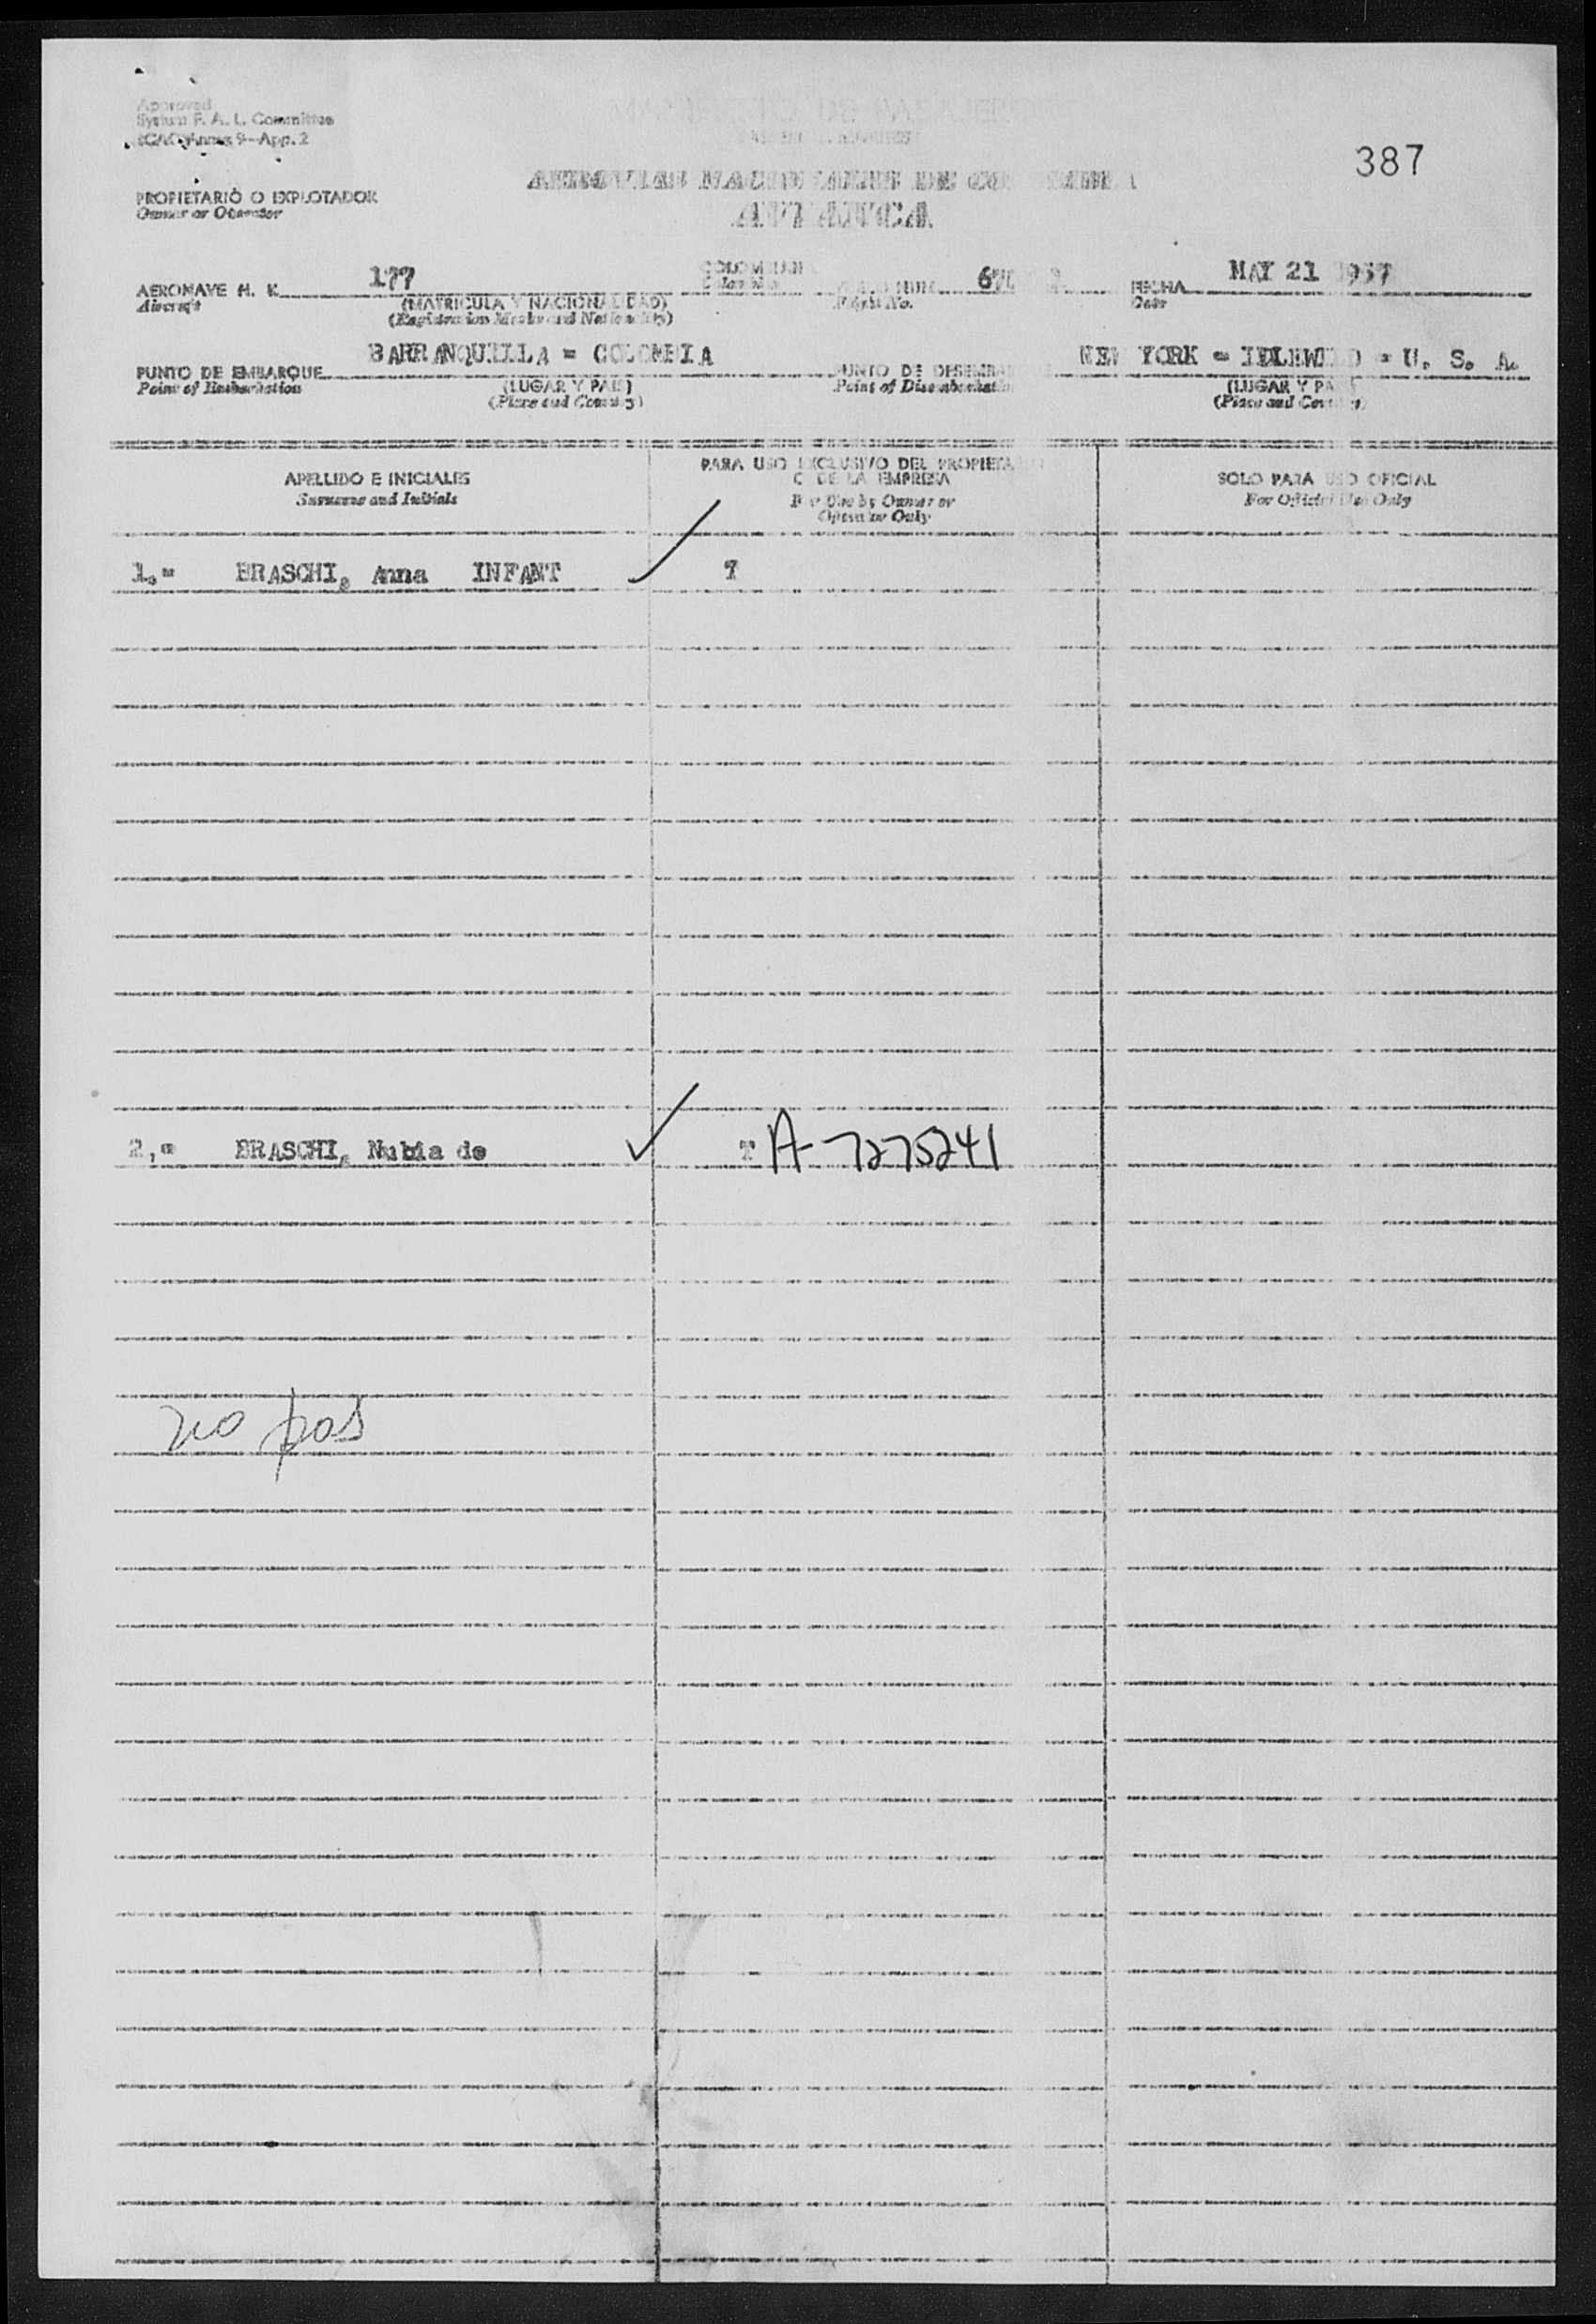 Approved
System F. A. L. Committee
ICAO Annex 9—App. 2
387
AEROVIAS NACIONALES DE COLOMBIA
AVIANCA
PROPIETARIO O EXPLOTADOR
Owner or Operator
AERONAVE H. K. 177 COLOMBIANA MAY 21 1957
Aircraft (MATRICULA Y NACIONALIDAD) Colombian Flight No. FECHA
(Registration Marks and Nationality) Date
BARRANQUILLA = COLOMBIA NEW YORK = IDLEWILD = U. S. A.
PUNTO DE EMBARQUE PUNTO DE DESEMBAR
Point of Embarkation (LUGAR Y PAIS) Point of Disembarkation (LUGAR Y PAIS)
(Place and Country) (Place and Country)
APELLIDO E INICIALES
Surname and Initials
PARA USO EXCLUSIVO DEL PROPIETA
O DE LA EMPRESA
For Use by Owner or
Operator Only
SOLO PARA USO OFICIAL
For Official Use Only
1.= BRASCHI, Anna INFANT
2,= BRASCHI, Nubia de T A-7275241
no pas